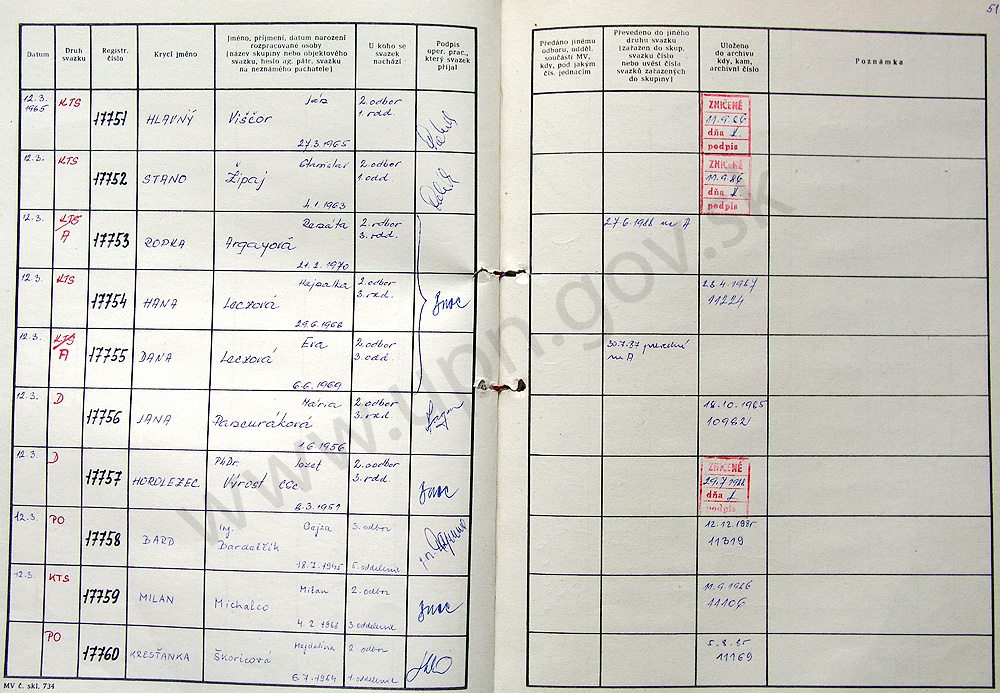 51
Datum
Druh svazku
Registr. číslo
Krycí jméno
Jméno, příjmení, datum narození
rozpracované osoby
(název skupiny nebo objektového
svazku, heslo ag. pátr. svazku
na neznámého pachatele)
U koho se
svazek
nachází
Podpis
oper. prac.,
který svazek
přijal
Předáno jinému
odboru, odděl.
součásti MV,
kdy, pod jakým
čís. jednacím
Převedeno do jiného
druhu svazku
(zařazen do skup.
svazku číslo
nebo uvést čísla
svazků zařazených
do skupiny)
Uloženo
do archivu
kdy, kam,
archivní číslo
Poznámka
12.3. 1965 KTS 17751 HLAVNÝ
Viščor
27.3.1965
2.odbor
1.odd.
ZNIČENÉ
11.9.86
dňa
podpis
12.3. KTS 17752 STANO
Stanislav
Žipaj
4.1.1963
2.odbor
1.odd.
ZNIČENÉ
11.9.86
dňa
podpis
12.3. KTS
A
17753
Renáta
Argayová
21.2.1970
2.odbor
3.odd.
27.6.1988 na A
12.3. KTS 17754 HANA
Leczová
29.6.1966
2.odbor
3.odd.
11224
12.3. KTS
A
17755 DANA
Eva
Leczová
6.6.1969
2.odbor
3.odd.
30.7.87
na A
12.3. D 17756 JANA
Mária
Pancuráková
1.6.1956
2.odbor
3.odd.
18.10.1985
10982
12.3. D 17757 HOROLEZEC
PhDr. Jozef
Výrost CSc.
2.odbor
3.odd.
ZNIČENÉ
29.7.1988
dňa
podpis
12.3. PO 17758 BARD
Ing. Gejza
Bardelčík
18.7.1945
3.odbor
5.oddelenie
12.12.1985
11319
12.3. KTS 17759 MILAN
Milan
Michalco
4.2.1968
2.odbor
3.oddelenie
11.9.1986
11106
PO 17760 KRESŤANKA
Magdaléna
Škoricová
6.7.1964
2.odbor
1.oddelenie
5.8.85
11169
MV č. skl. 734
www.upn.gov.sk